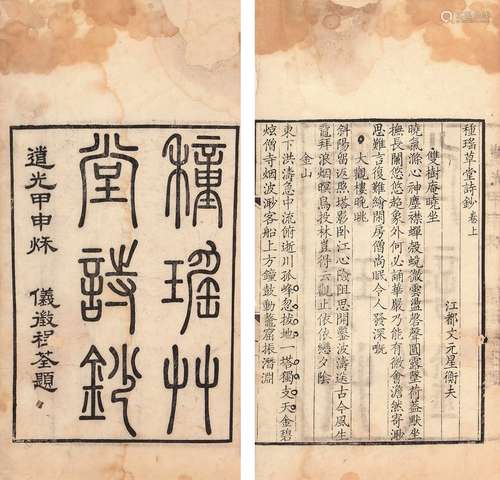 種瑤艸
堂詩鈔
道光甲申秌 儀徵程荃題
種瑤草堂詩鈔卷上
江都文元星衡夫
雙樹庵曉坐
曉氣滌心神塵襟蟬殼蛻微雲盪磬聲圓露墜荷蓋默坐
撫長闌悠悠起象外何必誦華嚴乃能有微會澹然寄渺
思難言復難繪閒房僧尚眠令人發深嘅
大觀樓晚眺
斜陽留返照塔影臥江心險阻思開鑿波濤送古今風生
黿拜浪烟暝鳥投林豈得云觀止依依戀夕陰
金山
東下洪濤急中流俯逝川孤峰忽拔地一塔獨支天金碧
炫僧寺烟波渺客船上方鐘鼓動鼇窟振潛淵